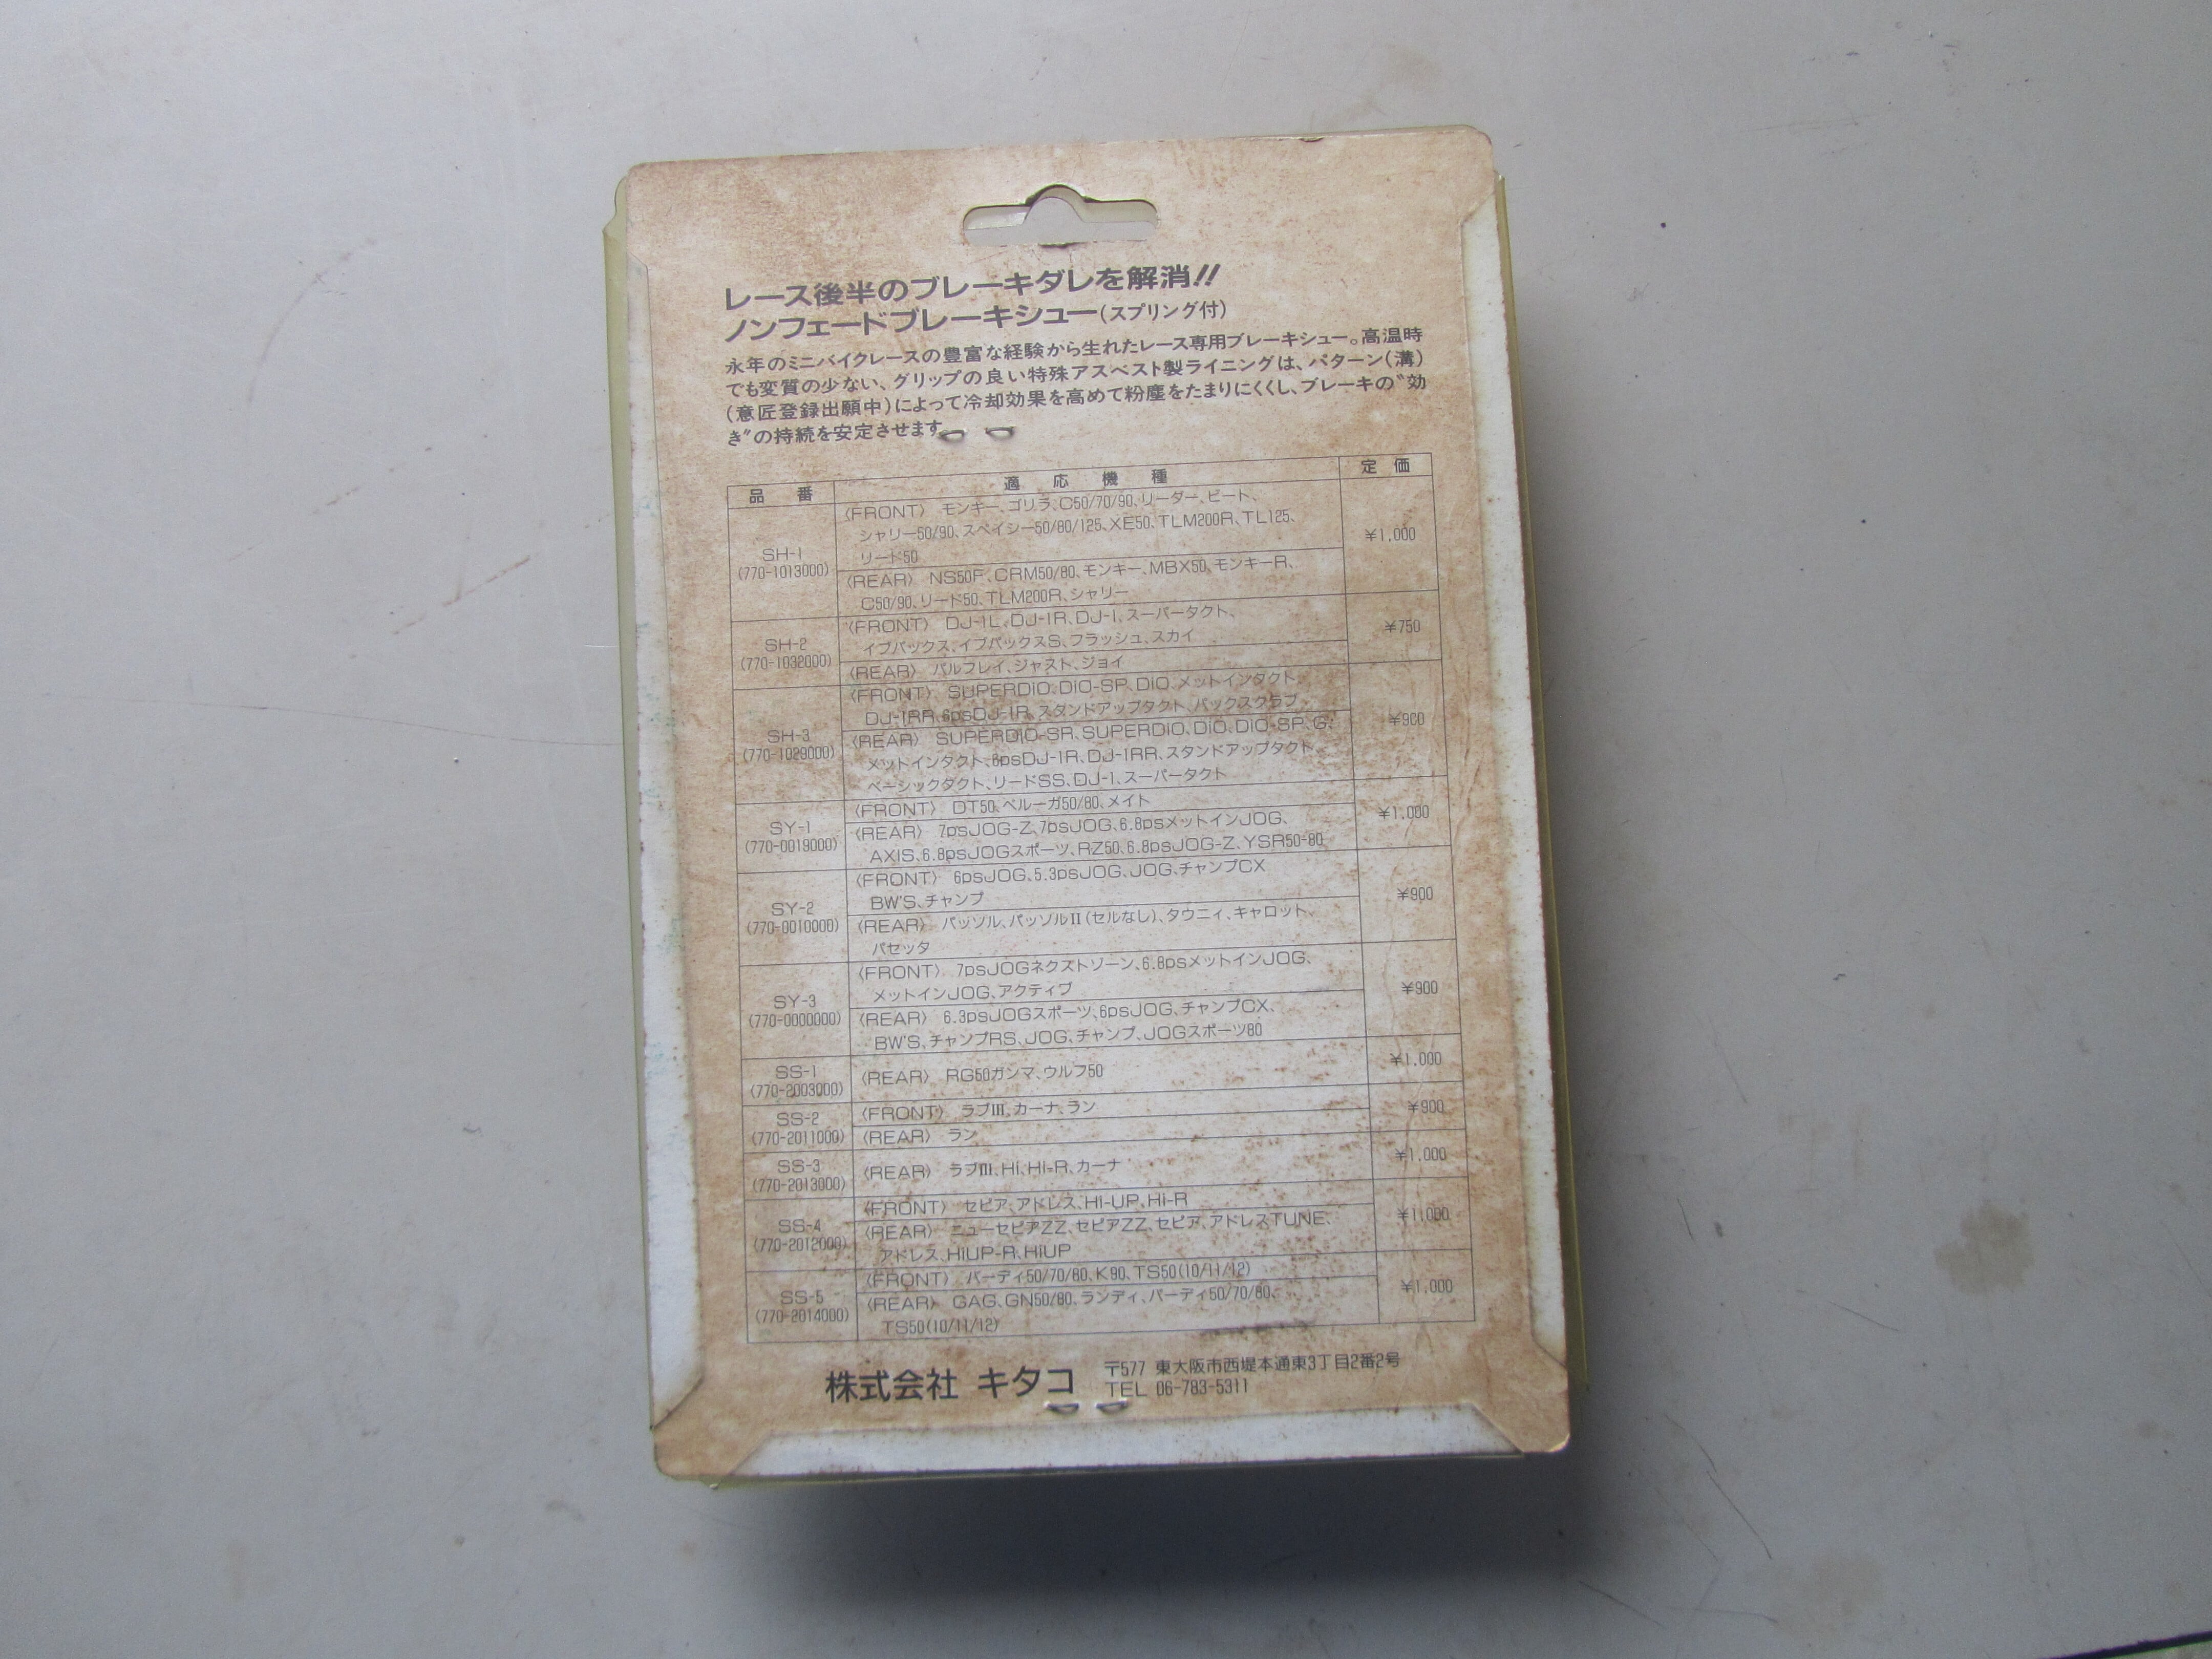 レース後半のブレーキダレを解消!!
ノンフェードブレーキシュー(スプリング付)
永年のミニバイクレースの豊富な経験から生れたレース専用ブレーキシュー。高温時
でも変質の少ない、グリップの良い特殊アスベスト製ライニングは、パターン(溝)
(意匠登録出願中)によって冷却効果を高めて粉塵をたまりにくくし、ブレーキの〝効
き〞の持続を安定させます
品番 適応機種 定価
SH-1
(770-1013000)
〈FRONT〉 モンキー、ゴリラ、C50/70/90、リーダー、ビート、
シャリー50/90、スペイシー50/80/125、XE50、TLM200R、TL125、
リード50
〈REAR〉 NS50F、CRM50/80、モンキー、MBX50、モンキーR、
C50/90、リード50、TLM200R、シャリー
¥1,000
SH-2
(770-1032000)
〈FRONT〉 DJ-1L、DJ-1R、DJ-1、スーパータクト、
イブパックス、イブパックスS、フラッシュ、スカイ
〈REAR〉 パルフレイ、ジャスト、ジョイ
¥750
SH-3
(770-1029000)
〈FRONT〉 SUPERDIO、DIO-SP、DIO、メットインタクト、
DJ-1RR、6psDJ-1R、スタンドアップタクト、パックスクラブ
〈REAR〉 SUPERDIO-SR、SUPERDIO、DIO、DIO-SP、G'、
メットインタクト、6psDJ-1R、DJ-1RR、スタンドアップタクト、
ベーシックタクト、リードSS、DJ-1、スーパータクト
¥900
SY-1
(770-0019000)
〈FRONT〉 DT50、ベルーガ50/80、メイト
〈REAR〉 7psJOG-Z、7psJOG、6.8psメットインJOG、
AXIS、6.8psJOGスポーツ、RZ50、6.8psJOG-Z、YSR50-80
¥1,000
SY-2
(770-0010000)
〈FRONT〉 6psJOG、5.3psJOG、JOG、チャンプCX
BW'S、チャンプ
〈REAR〉 パッソル、パッソルII(セルなし)、タウニィ、キャロット、
パセッタ
¥900
SY-3
(770-0000000)
〈FRONT〉 7psJOGネクストゾーン、6.8psメットインJOG、
メットインJOG、アクティブ
〈REAR〉 6.3psJOGスポーツ、6psJOG、チャンプCX、
BW'S、チャンプRS、JOG、チャンプ、JOGスポーツ80
¥900
SS-1
(770-2003000)
〈REAR〉 RG50ガンマ、ウルフ50
¥1,000
SS-2
(770-2011000)
〈FRONT〉 ラブIII、カーナ、ラン
〈REAR〉 ラン
¥900
SS-3
(770-2013000)
〈REAR〉 ラブIII、HI、HI-R、カーナ
¥1,000
SS-4
(770-2012000)
〈FRONT〉 セピア、アドレス、HI-UP、HI-R
〈REAR〉 ニューセピアZZ、セピアZZ、セピア、アドレスTUNE、
アドレス、HIUP-R、HIUP
¥1,000
SS-5
(770-2014000)
〈FRONT〉 バーディ50/70/80、K90、TS50(10/11/12)
〈REAR〉 GAG、GN50/80、ランディ、バーディ50/70/80、
TS50(10/11/12)
¥1,000
株式会社 キタコ
〒577 東大阪市西堤本通東3丁目2番2号
TEL 06-783-5311